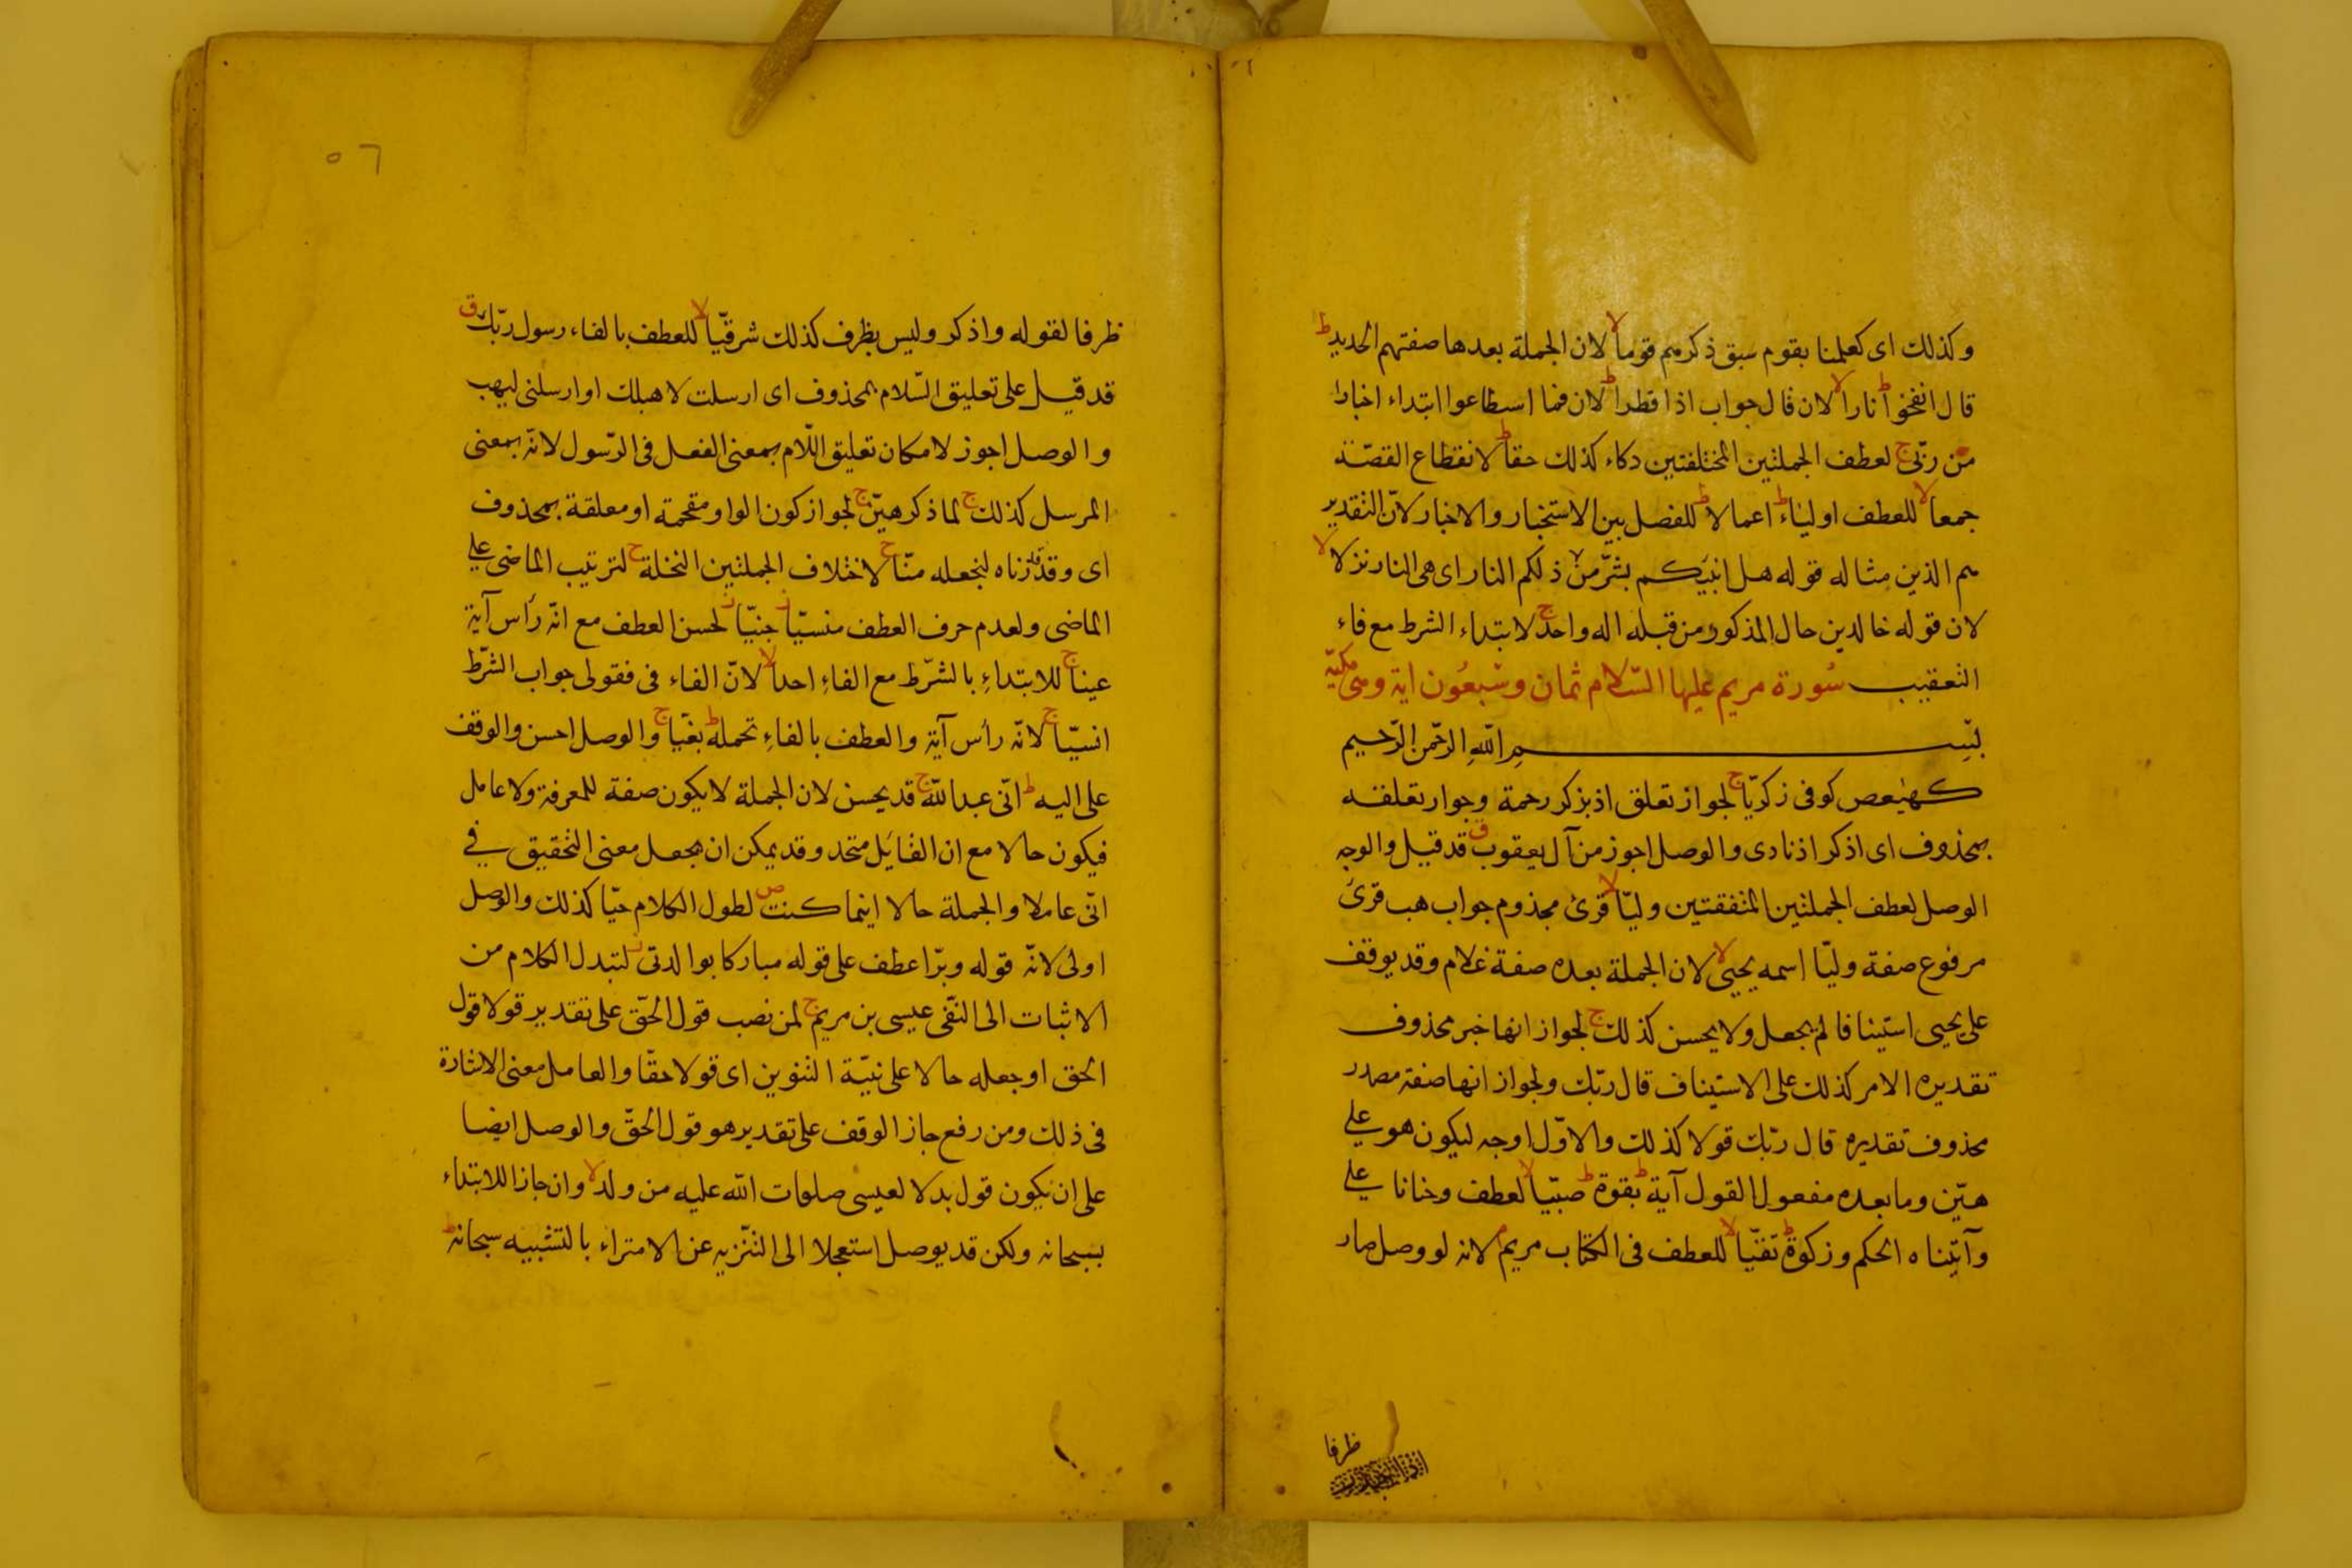 وكذلك اى كعلمنا بقوم سبق ذكرهم قوما لا لان الجملة بعدها صفتهم الحديد ط
قال انفخوا ط نارا لا لان قال جواب اذا قطرا ط لان فما اسطاعوا ابتداء اخبار
من ربّى ج لعطف الجملتين المختلفتين دكاء كذلك حقا ط لانقطاع القصّة
جمعا لا للعطف اولياء ط اعمالا ط للفصل بين الاستخبار والاخبار لانّ التقدير
هم الذين مثاله قوله هل انبّيكم بشرّ من ذلكم النار اى هى النار نزلا لا
لان قوله خالدين حال المذكور من قبله اله واحد ج لابتداء الشرط مع فاء
التعقيب سُورة مريم عليها السّلام ثمان وتسْعُون اية وهى مكيّة
بسْم اللهِ الرّحمن الرّحيم
كهيعص كوفى زكريّا ج لجواز تعلق اذ بذكر رحمة وجواز تعلقه
بمحذوف اى اذكر اذ نادى والوصل اجوز من آل يعقوب ق قد قيل والوجه
الوصل لعطف الجملتين المتفقتين وليّا لا قرئ مجذوم جواب هب قرئ
مرفوع صفة وليّا اسمه يحيى لا لان الجملة بعده صفة غلام وقد يوقف
على يحيى استينافا لم يجعل ولا يحسن كذلك ج لجواز انها خبر محذوف
تقديره الامر كذلك على الاستيناف قال ربّك ولجواز انها صفة مصدر
محذوف تقديره قال ربّك قولا كذلك والاوّل اوجه ليكون هو على
هيّن وما بعده مفعول القول آية ط بقوة ط صبيّا لا لعطف وحنانا على
وآتيناه الحكم وزكوة ط تقيّا لا للعطف فى الكتاب مريم م لانه لو وصل صار
ظرفا
٥٦
ظرفا لقوله واذكر وليس بظرف كذلك شرقيّا لا للعطف بالفاء رسول ربّك ق
قد قيل على تعليق السّلام بمحذوف اى ارسلت لاهبلك او ارسلنى ليهب
والوصل اجوز لامكان تعليق اللّام بمعنى الفعل فى الرّسول لانّه بمعنى
المرسل كذلك ج لما ذكر هيّن ج لجواز كون الواو مقحمة او معلقة بمحذوف
اى وقد قدّرناه لنجعله منّا ج لاختلاف الجملتين النخلة ج لترتيب الماضى على
الماضى ولعدم حرف العطف منسيّا ز جنيّا ز لحسن العطف مع انّه رأس آية
عينا ج للابتداءِ بالشّرط مع الفاءِ احدا لا لانّ الفاء فى فقولى جواب الشّرط
انسيّا ج لانّه رأس آية والعطف بالفاءِ تحمله ط بغيّا ج والوصل احسن والوقف
على اليه ط انّى عبد اللّه ج قد يحسن لان الجملة لا يكون صفة للمعرفة ولا عامل
فيكون حالا مع ان القائل متحد وقد يمكن ان يجعل معنى التحقيق في
انّى عاملا والجملة حالا اينما كنت ص لطول الكلام حيّا كذلك والوصل
اولى لانّه قوله وبرّا عطف على قوله مباركا بوالدتى ز لتبدل الكلام من
الاثبات الى النّفى عيسى بن مريم ج لمن نصب قول الحقّ على تقدير قولا قول
الحق او جعله حالا على نيّة التنوين اى قولا حقّا والعامل معنى الاشارة
فى ذلك ومن رفع جاز الوقف على تقدير هو قول الحقّ والوصل ايضا
على ان يكون قول بدلا لعيسى صلوات الله عليه من ولد لا وان جاز اللابتداء
بسبحانه ولكن قد يوصل استعجالا الى التنّزيه عن الامتراء بالتشبيه سبحانه ط